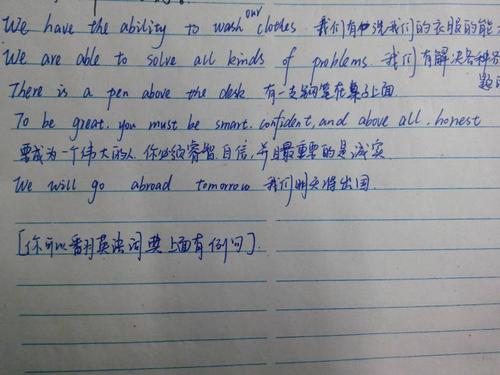 We have the ability to wash our clothes. 我们有洗我们的衣服的能
We are able to solve all kinds of problems. 我们有解决各种各
题的
There is a pen above the desk 有一支钢笔在桌子上面
To be great, you must be smart, confident, and above all, honest
要成为一个伟大的人, 你必须睿智, 自信, 并且最重要的是诚实.
We will go abroad tomorrow 我们明天将出国.
[你可以翻翻英语词典上面有例句].